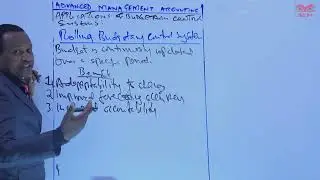 ADVANCED MANAGEMENT ACCOUNTING
Applications of Budgetary control
Systems
Rolling Budgetary Control System
Budget is continuously updated
over a specific period
Benefit
1. Adaptability to change
2. Improved forecasting accuracy
3. accountability